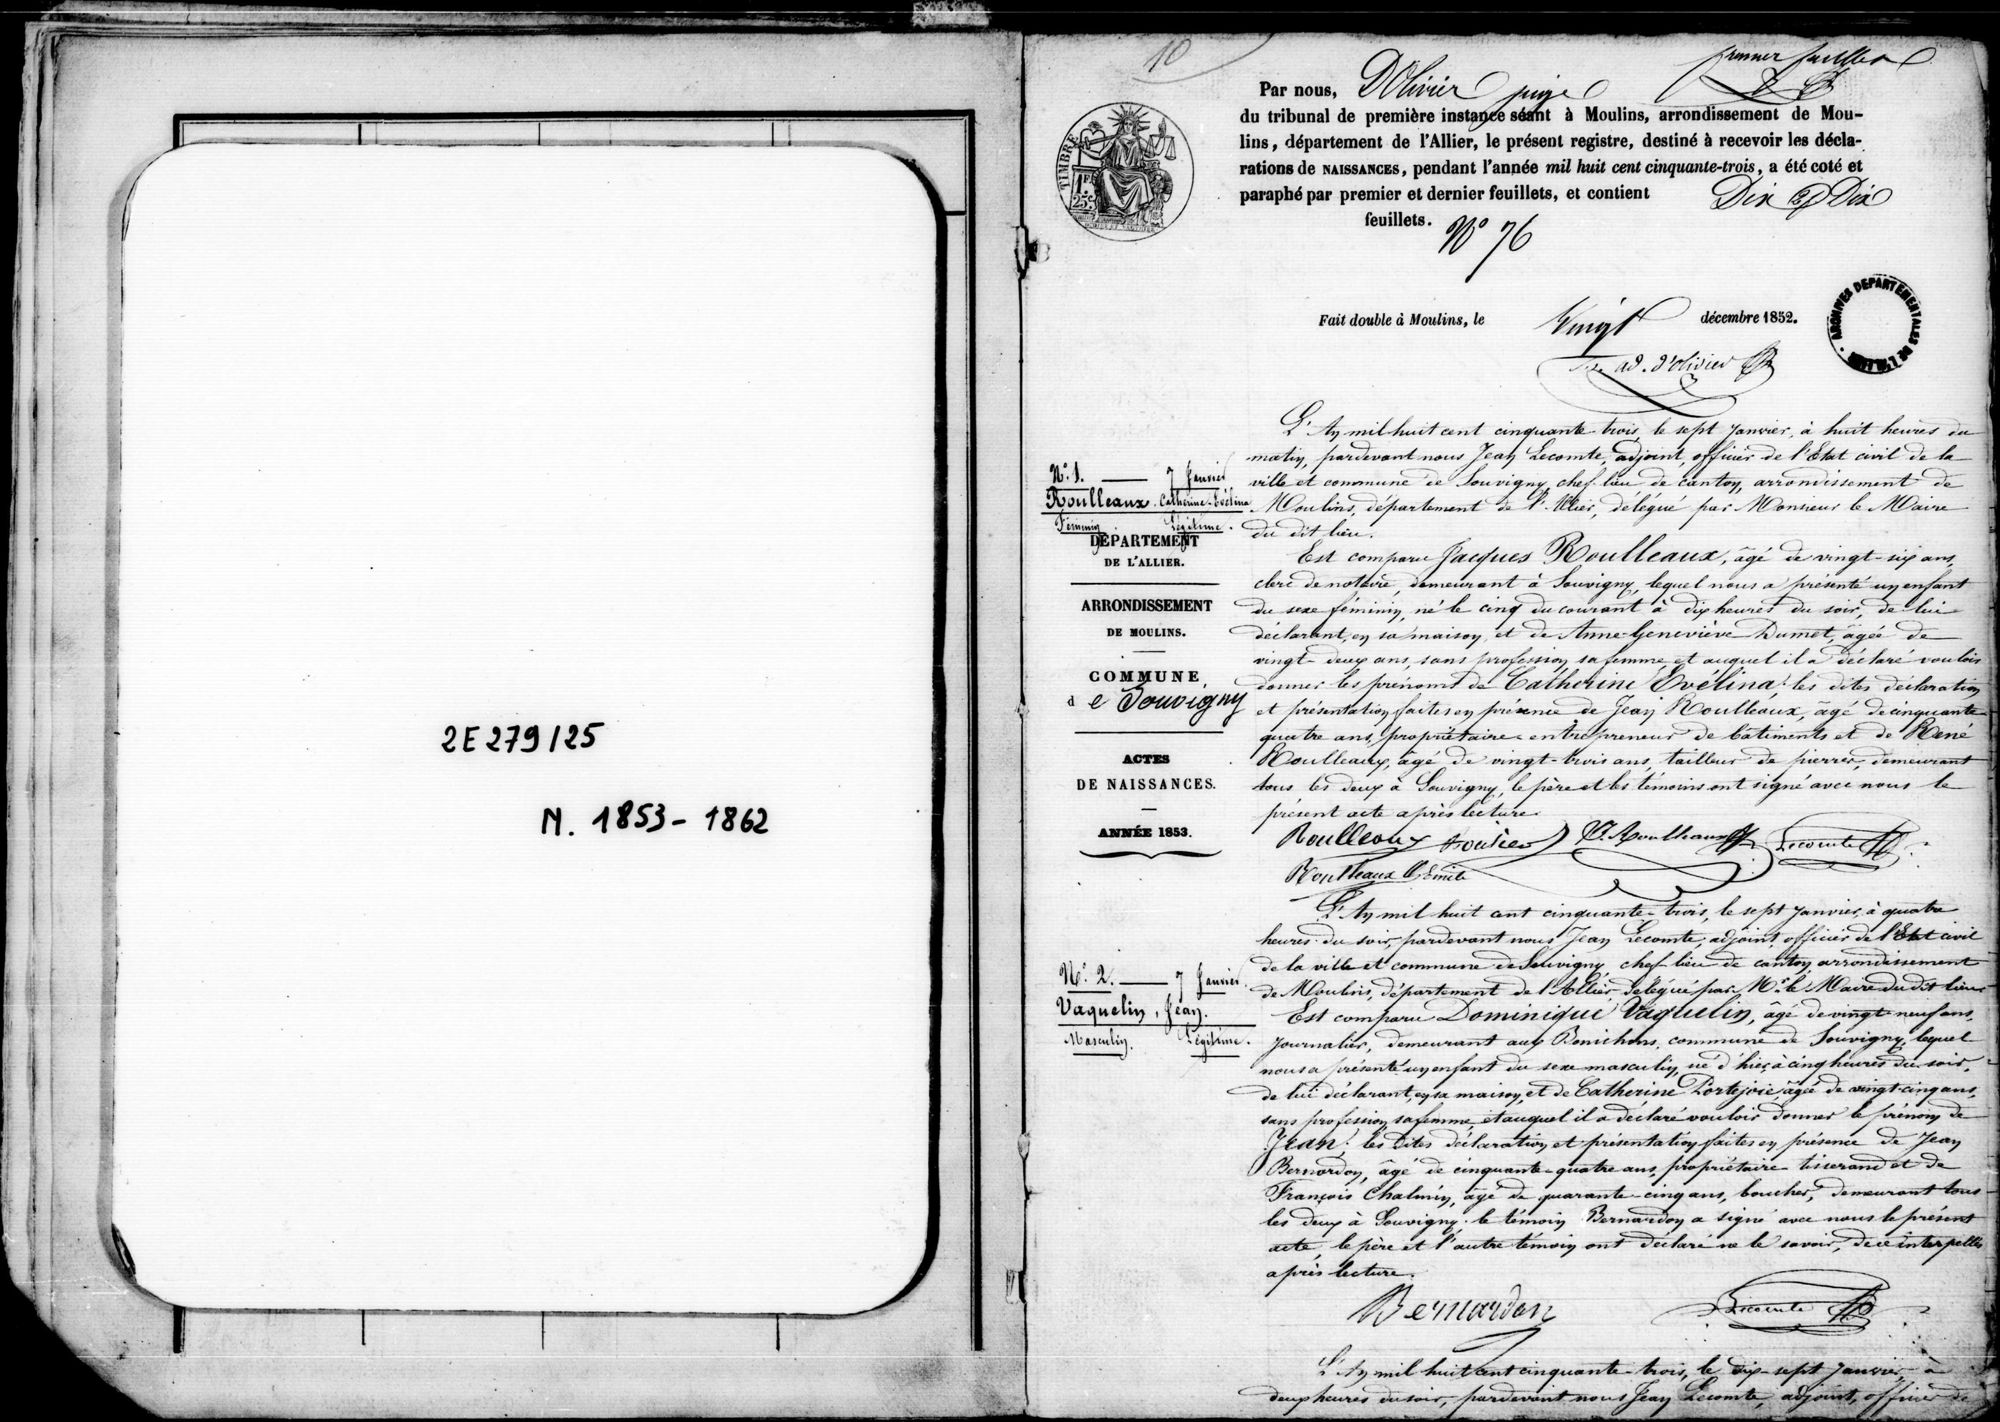 2E279/25
N. 1853-1862
10
premier feuillet
Par nous, D'Olivier juge
du tribunal de première instance séant à Moulins, arrondissement de Mou-
lins, département de l'Allier, le présent registre, destiné à recevoir les décla-
rations de NAISSANCES, pendant l'année mil huit cent cinquante-trois, a été coté et
paraphé par premier et dernier feuillets, et contient Dix
feuillets.
N° 76
TIMBRE
1F.
25c.
Fait double à Moulins, le Vingt décembre 1852.
ad. d'Olivier
ARCHIVES DEPARTEMENTALES DE L'ALLIER
N° 1. — 7 Janvier
Roulleaux, Catherine-Evélina
Féminin Légitime.
DÉPARTEMENT
DE L'ALLIER.
ARRONDISSEMENT
DE MOULINS.
COMMUNE
de Souvigny
ACTES
DE NAISSANCES.
ANNÉE 1853.
L'An mil huit cent cinquante-trois, le sept Janvier, à huit heures du
matin, pardevant nous Jean Lecomte, adjoint, officier de l'Etat civil de la
ville et commune de Souvigny, chef-lieu de canton, arrondissement de
Moulins, département de l'Allier, délégué par Monsieur le Maire
du dit lieu.
Est comparu Jacques Roulleaux, âgé de vingt-six ans,
clerc de notaire, demeurant à Souvigny, lequel nous a présenté un enfant
du sexe féminin, né le cinq du courant à dix heures du soir, de lui
déclarant, en sa maison, et de Anne-Geneviève Dumet, âgée de
vingt-deux ans, sans profession, sa femme, et auquel il a déclaré vouloir
donner les prénoms de Catherine Evélina; les dites déclaration
et présentation faites en présence de Jean Roulleaux, âgé de cinquante-
quatre ans, propriétaire-entrepreneur de bâtiments et de René
Roulleaux, âgé de vingt-trois ans, tailleur de pierres, demeurant
tous les deux à Souvigny, le père et les témoins ont signé avec nous le
présent acte après lecture.
Roulleaux Roulleaux Lecomte
Roulleaux
N° 2. — 7 Janvier.
Vaquelin, Jean.
Masculin. Légitime.
L'An mil huit cent cinquante-trois, le sept Janvier, à quatre
heures du soir, pardevant nous Jean Lecomte, adjoint, officier de l'Etat civil
de la ville et commune de Souvigny, chef-lieu de canton, arrondissement
de Moulins, département de l'Allier, délégué par Mr le Maire du dit lieu
Est comparu Dominique Vaquelin, âgé de vingt-neuf ans,
journalier, demeurant aux Bonichons, commune de Souvigny, lequel
nous a présenté un enfant du sexe masculin, né d'hier, à cinq heures du soir,
de lui déclarant, en sa maison, et de Catherine Portejoie, âgée de vingt-cinq ans,
sans profession, sa femme, et auquel il a déclaré vouloir donner le prénom de
Jean; les dites déclaration et présentation faites en présence de Jean
Bernardon, âgé de cinquante-quatre ans, propriétaire-tisserand et de
François Chalmin, âgé de quarante-cinq ans, boucher, demeurant tous
les deux à Souvigny; le témoin Bernardon a signé avec nous le présent
acte, le père et l'autre témoin ont déclaré ne le savoir, de ce interpellés
après lecture.
Bernardon Lecomte
L'An mil huit cent cinquante-trois, le dix-sept Janvier, à
deux heures du soir, pardevant nous Jean Lecomte, adjoint, officier de